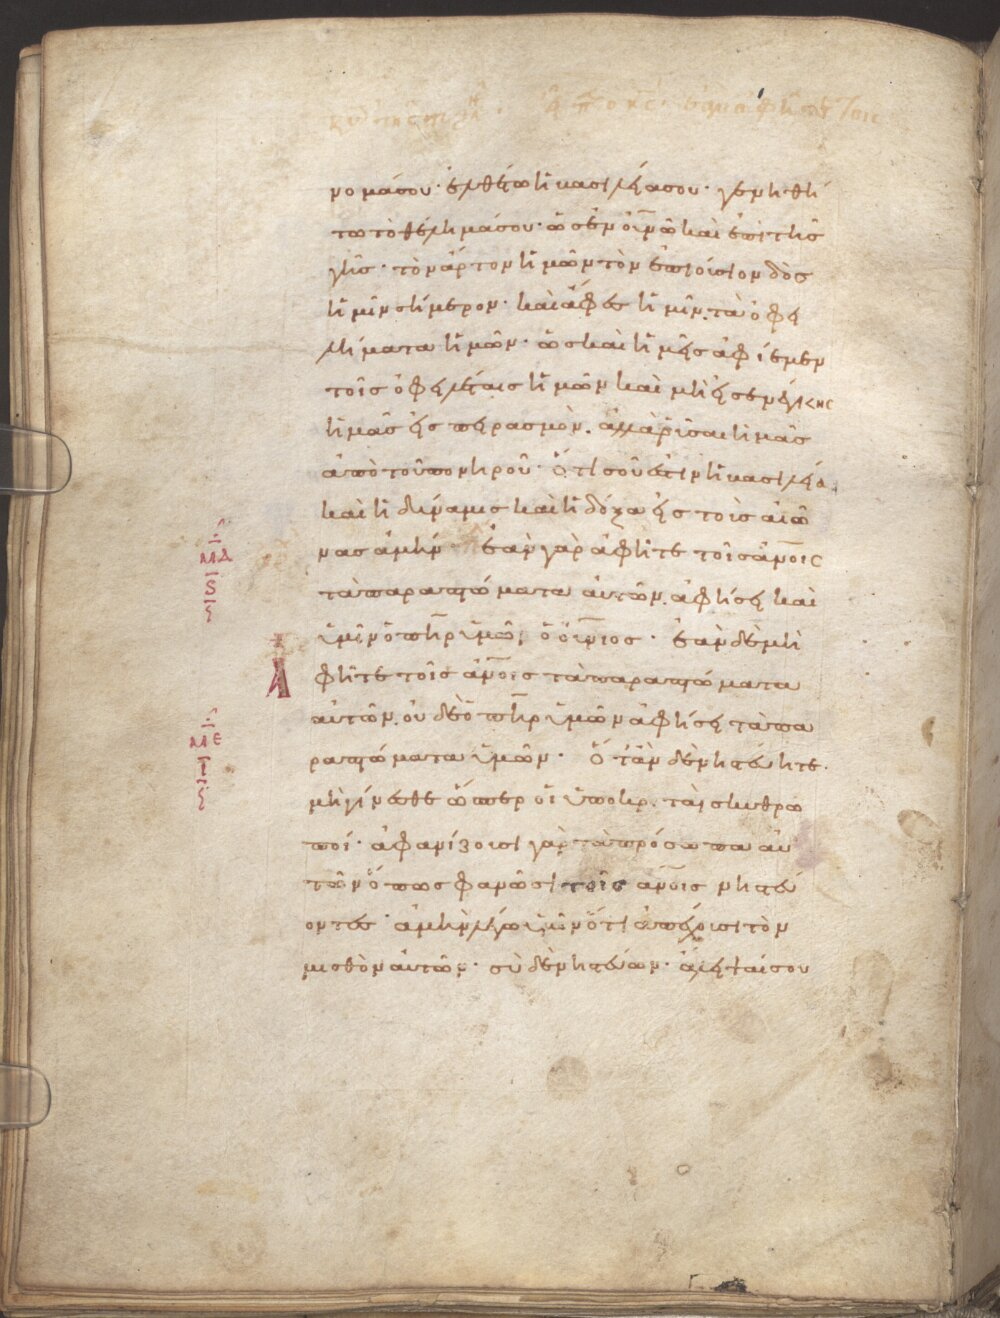 νομά σου· ἐλθέτω ἡ βασιλεία σου· γενηθή
τω τὸ θέλημά σου· ὡς ἐν οὐνῶ καὶ ἐπὶ τῆς
γῆς· τὸν ἄρτον ἡμῶν τὸν ἐπιούσιον δὸς
ἡμῖν σήμερον· καὶ ἄφες ἡμῖν τὰ ὀφει
λήματα ἡμῶν· ὡς καὶ ἡμεῖς ἀφίεμεν
τοῖς ὀφειλέταις ἡμῶν καὶ μὴ εἰσενέγκης
ἡμᾶς εἰς πειρασμὸν. ἀλλὰ ῥῦσαι ἡμᾶς
ἀπὸ τοῦ πονηροῦ· ὅτι σοῦ ἐστιν ἡ βασιλεία
καὶ ἡ δύναμις καὶ ἡ δόξα εἰς τοὺς αἰῶ
νας ἀμήν· ἐὰν γὰρ ἀφῆτε τοῖς ἀνοις
τὰ παραπτώματα αὐτῶν. ἀφήσει καὶ
ὑμῖν ὁ πηρ ὑμῶν ὁ οὐνιος· ἐὰν δὲ μὴ
ἀφῆτε τοῖς ἀνοις τὰ παραπτώματα
αὐτῶν. οὐδὲ ὁ πηρ ὑμῶν ἀφήσει τὰ πα
ραπτώματα ὑμῶν· ὅταν δὲ νηστεύητε.
μὴ γίνεσθε ὥσπερ οἱ ὑποκρ. ταὶ σκυθρω
ποί· ἀφανίζουσι γὰρ τὰ πρόσωπα αὐ
τῶν ὅπως φανῶσι τοῖς ἀνοις νηστεύ
οντες· ἀμὴν λέγω ὑμῖν ὅτι ἀπέχουσι τὸν
μισθὸν αὐτῶν· σὺ δὲ νηστεύων· ἄλειψαί σου
ΜΔ
Ϛ
ΜΕ
Ι